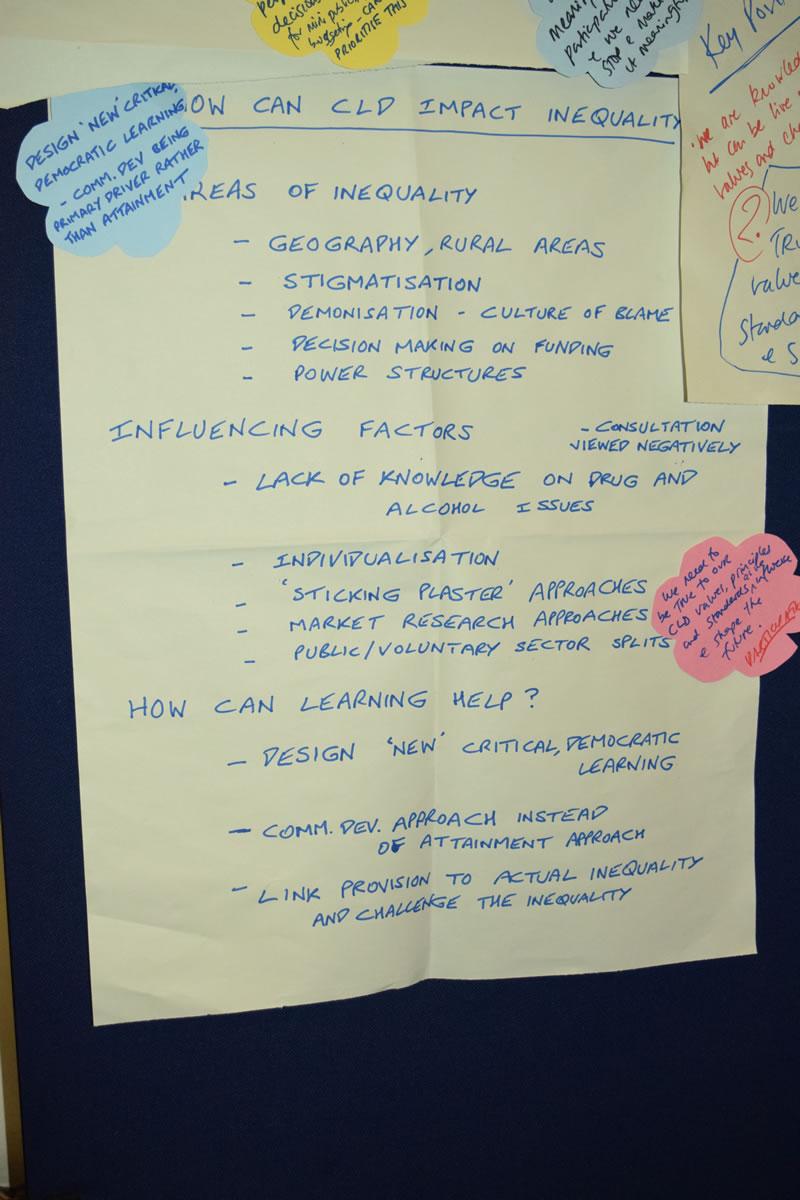 decisions
for mini public
budgeting - CAN
PRIORITISE THIS
participat
e we need
STOP e make
it meaningful
Key Poin
'We are knowled
but can be live
values and cha
?
We
TRU
value
Standa
e S
DESIGN 'NEW' CRITICAL,
DEMOCRATIC LEARNING
- COMM. DEV BEING
PRIMARY DRIVER RATHER
THAN ATTAINMENT
OW CAN CLD IMPACT INEQUALITY
REAS OF INEQUALITY
- GEOGRAPHY, RURAL AREAS
- STIGMATISATION
- DEMONISATION - CULTURE OF BLAME
- DECISION MAKING ON FUNDING
- POWER STRUCTURES
INFLUENCING FACTORS
- CONSULTATION
VIEWED NEGATIVELY
- LACK OF KNOWLEDGE ON DRUG AND
ALCOHOL ISSUES
- INDIVIDUALISATION
- 'STICKING PLASTER' APPROACHES
- MARKET RESEARCH APPROACHES
- PUBLIC/VOLUNTARY SECTOR SPLITS
We need to
be true to our
CLD values, principles
and standards, influence
e shape the
future.
HOW CAN LEARNING HELP?
- DESIGN 'NEW' CRITICAL, DEMOCRATIC
LEARNING
- COMM. DEV. APPROACH INSTEAD
OF ATTAINMENT APPROACH
- LINK PROVISION TO ACTUAL INEQUALITY
AND CHALLENGE THE INEQUALITY